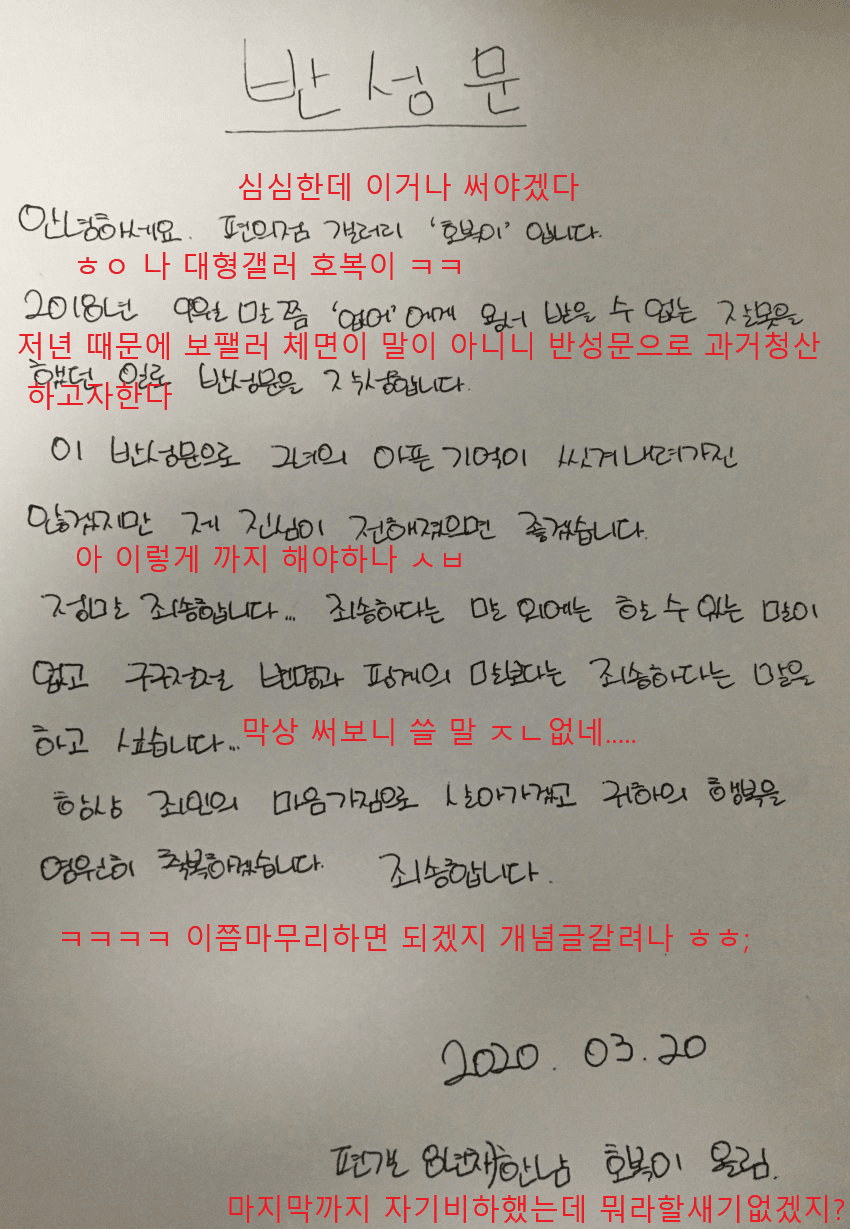 반성문
심심한데 이거나 써야겠다
안녕하세요. 편의점 갤러리 '호복이' 입니다.
ㅎㅇ 나 대형갤러 호복이 ㅋㅋ
2018년 9월 말 쯤 '없어'에게 용서 받을 수 없는 잘못을
저년 때문에 보팰러 체면이 말이 아니니 반성문으로 과거청산
했던 일로 반성문을 작성합니다.
하고자한다
이 반성문으로 그녀의 아픈 기억이 씻겨내려가진
않겠지만 제 진심이 전해졌으면 좋겠습니다.
아 이렇게 까지 해야하나 ㅅㅂ
정말 죄송합니다... 죄송하다는 말 외에는 할 수 있는 말이
없고 구구절절 변명과 핑계의 말보다는 죄송하다는 말을
하고 싶습니다...
막상 써보니 쓸 말 ㅈㄴ없네.....
항상 죄인의 마음가짐으로 살아가겠고 귀하의 행복을
영원히 축복하겠습니다. 죄송합니다.
ㅋㅋㅋㅋ 이쯤마무리하면 되겠지 개념글갈려나 ㅎㅎ;
2020. 03. 20
편갤 8년차한남 호복이 올림.
마지막까지 자기비하했는데 뭐라할새기없겠지?